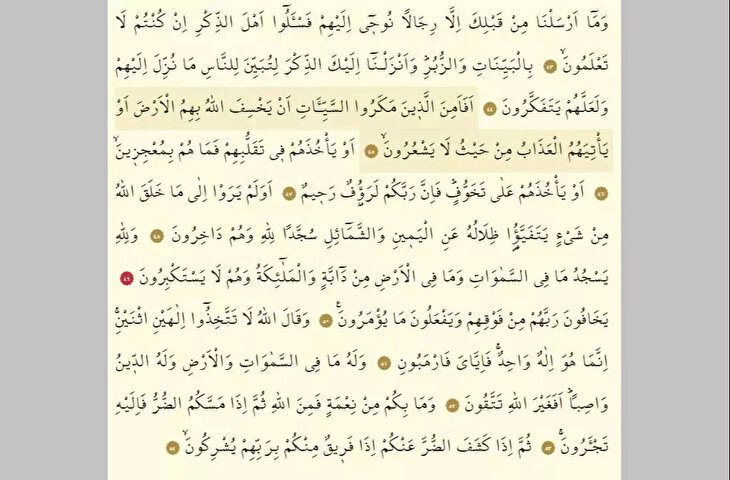 وَمَٓا اَرْسَلْنَا مِنْ قَبْلِكَ اِلَّا رِجَالًا نُوح۪ٓي اِلَيْهِمْ فَسْـَٔلُٓوا اَهْلَ الذِّكْرِ اِنْ كُنْتُمْ لَا
تَعْلَمُونَۙ ﴿٤٣﴾ بِالْبَيِّنَاتِ وَالزُّبُرِۜ وَاَنْزَلْـنَٓا اِلَيْكَ الذِّكْرَ لِتُبَيِّنَ لِلنَّاسِ مَا نُزِّلَ اِلَيْهِمْ
وَلَعَلَّهُمْ يَتَفَكَّرُونَ ﴿٤٤﴾ اَفَاَمِنَ الَّذ۪ينَ مَكَرُوا السَّيِّـَٔاتِ اَنْ يَخْسِفَ اللّٰهُ بِهِمُ الْاَرْضَ اَوْ
يَأْتِيَهُمُ الْعَذَابُ مِنْ حَيْثُ لَا يَشْعُرُونَۙ ﴿٤٥﴾ اَوْ يَأْخُذَهُمْ ف۪ي تَقَلُّبِهِمْ فَمَا هُمْ بِمُعْجِز۪ينَۙ
﴿٤٦﴾ اَوْ يَأْخُذَهُمْ عَلٰى تَخَوُّفٍۜ فَاِنَّ رَبَّكُمْ لَرَؤُ۫فٌ رَح۪يمٌ ﴿٤٧﴾ اَوَلَمْ يَرَوْا اِلٰى مَا خَلَقَ اللّٰهُ
مِنْ شَيْءٍ يَتَفَيَّؤُ۬ا ظِلَالُهُ عَنِ الْيَم۪ينِ وَالشَّمَٓائِلِ سُجَّدًا لِلّٰهِ وَهُمْ دَاخِرُونَ ﴿٤٨﴾ وَلِلّٰهِ
يَسْجُدُ مَا فِي السَّمٰوَاتِ وَمَا فِي الْاَرْضِ مِنْ دَٓابَّةٍ وَالْمَلٰٓئِكَةُ وَهُمْ لَا يَسْتَكْبِرُونَ ﴿٤٩﴾
يَخَافُونَ رَبَّهُمْ مِنْ فَوْقِهِمْ وَيَفْعَلُونَ مَا يُؤْمَرُونَ۟ ﴿٥٠﴾ وَقَالَ اللّٰهُ لَا تَتَّخِذُٓوا اِلٰهَيْنِ اثْنَيْنِۚ
اِنَّمَا هُوَ اِلٰهٌ وَاحِدٌۚ فَاِيَّايَ فَارْهَبُونِ ﴿٥١﴾ وَلَهُ مَا فِي السَّمٰوَاتِ وَالْاَرْضِ وَلَهُ الدّ۪ينُ
وَاصِبًاۜ اَفَغَيْرَ اللّٰهِ تَتَّقُونَ ﴿٥٢﴾ وَمَا بِكُمْ مِنْ نِعْمَةٍ فَمِنَ اللّٰهِ ثُمَّ اِذَا مَسَّكُمُ الضُّرُّ فَاِلَيْهِ
تَجْـَٔرُونَۚ ﴿٥٣﴾ ثُمَّ اِذَا كَشَفَ الضُّرَّ عَنْكُمْ اِذَا فَر۪يقٌ مِنْكُمْ بِرَبِّهِمْ يُشْرِكُونَۙ ﴿٥٤﴾